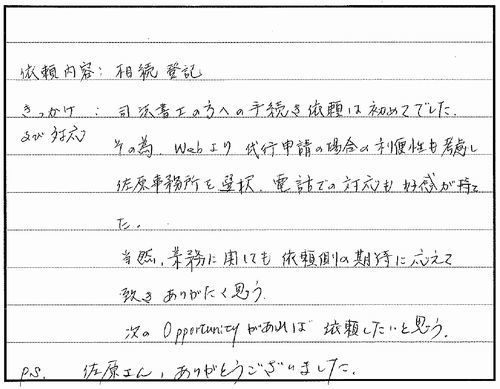 依頼内容: 相続登記
きっかけ : 司法書士の方への手続き依頼は初めてでした.
及び対応 その為、Webより代行申請の場合の利便性も考慮し
佐原事務所を選択、電話での対応も好感が持て
た.
当然、業務に関しても依頼側の期待に応えて
頂きありがたく思う.
次のOpportunityがあれば依頼したいと思う.
P.S. 佐原さん、ありがとうございました.